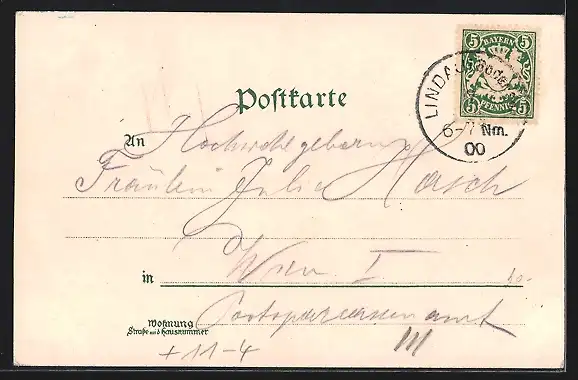 5 BAYERN 5
5 PFENNIG 5
LINDAU
6-7 Nm.
00
Postkarte
An Hochwohlgeboren
Fräulein Julie Hasch
in Wien I
Wohnung
Straße und Hausnummer
Postsparcassenamt
III
+ 11-4